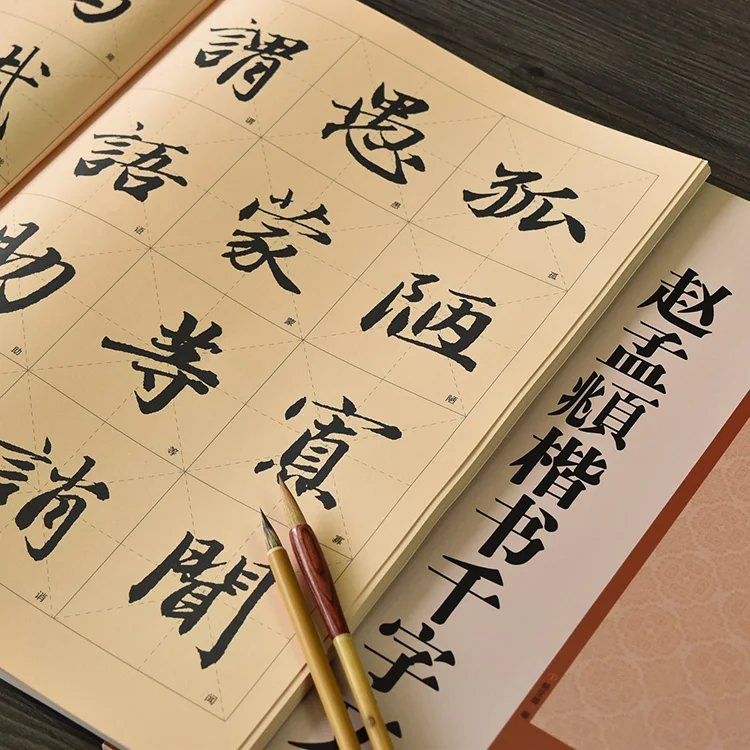 孤陋寡聞
孤 陋 寡 闻
愚蒙等誚
愚 蒙 等 诮
謂語助
谓 语 助
赵孟頫楷书千字